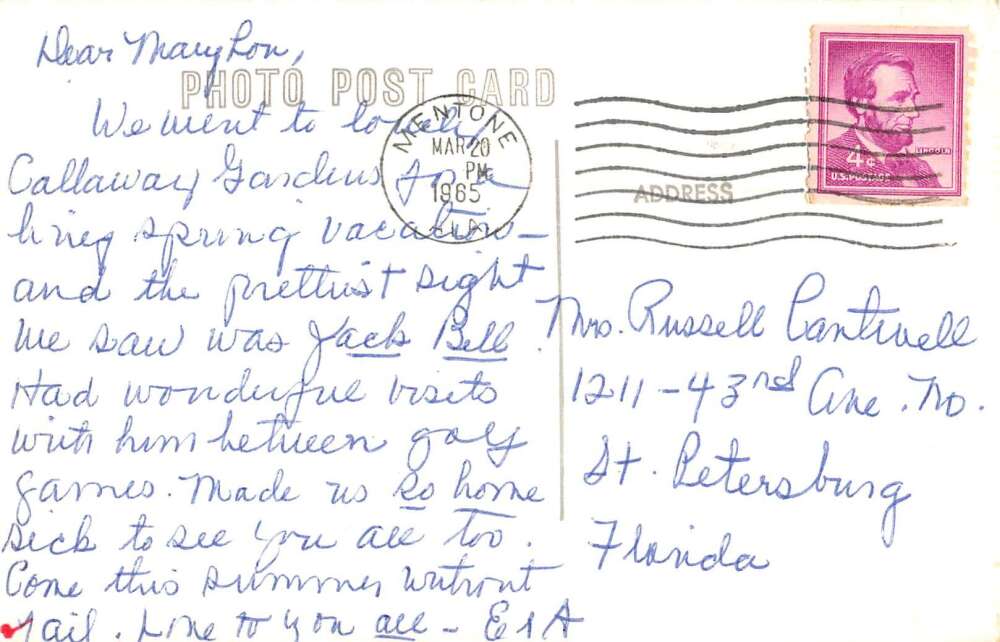 Dear Mary Lou,
PHOTO POST CARD
We went to lovely
Callaway Gardens for a
spring vacation –
and the prettiest sight
we saw was Jack Bell.
Had wonderful visits
with him between golf
games. Made us so home
sick to see you all too.
Come this summer without
fail. Love to you all – E & A
MENTONE
MAR 20
PM
1965
ALA.
ADDRESS
LINCOLN
4¢
U.S. POSTAGE
Mrs. Russell Cantwell
1211 – 43rd Ave. No.
St. Petersburg
Florida